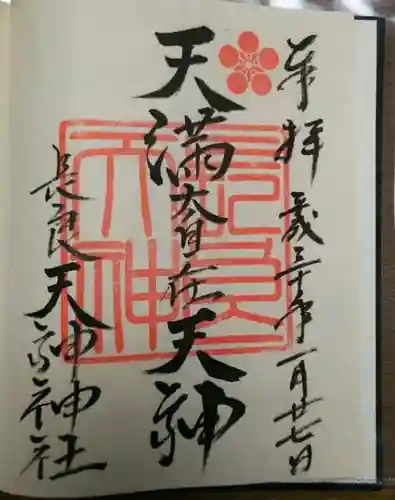 奉拝 平成三十年一月廿七日
天満大自在天神
長良天神神社
長良
天神